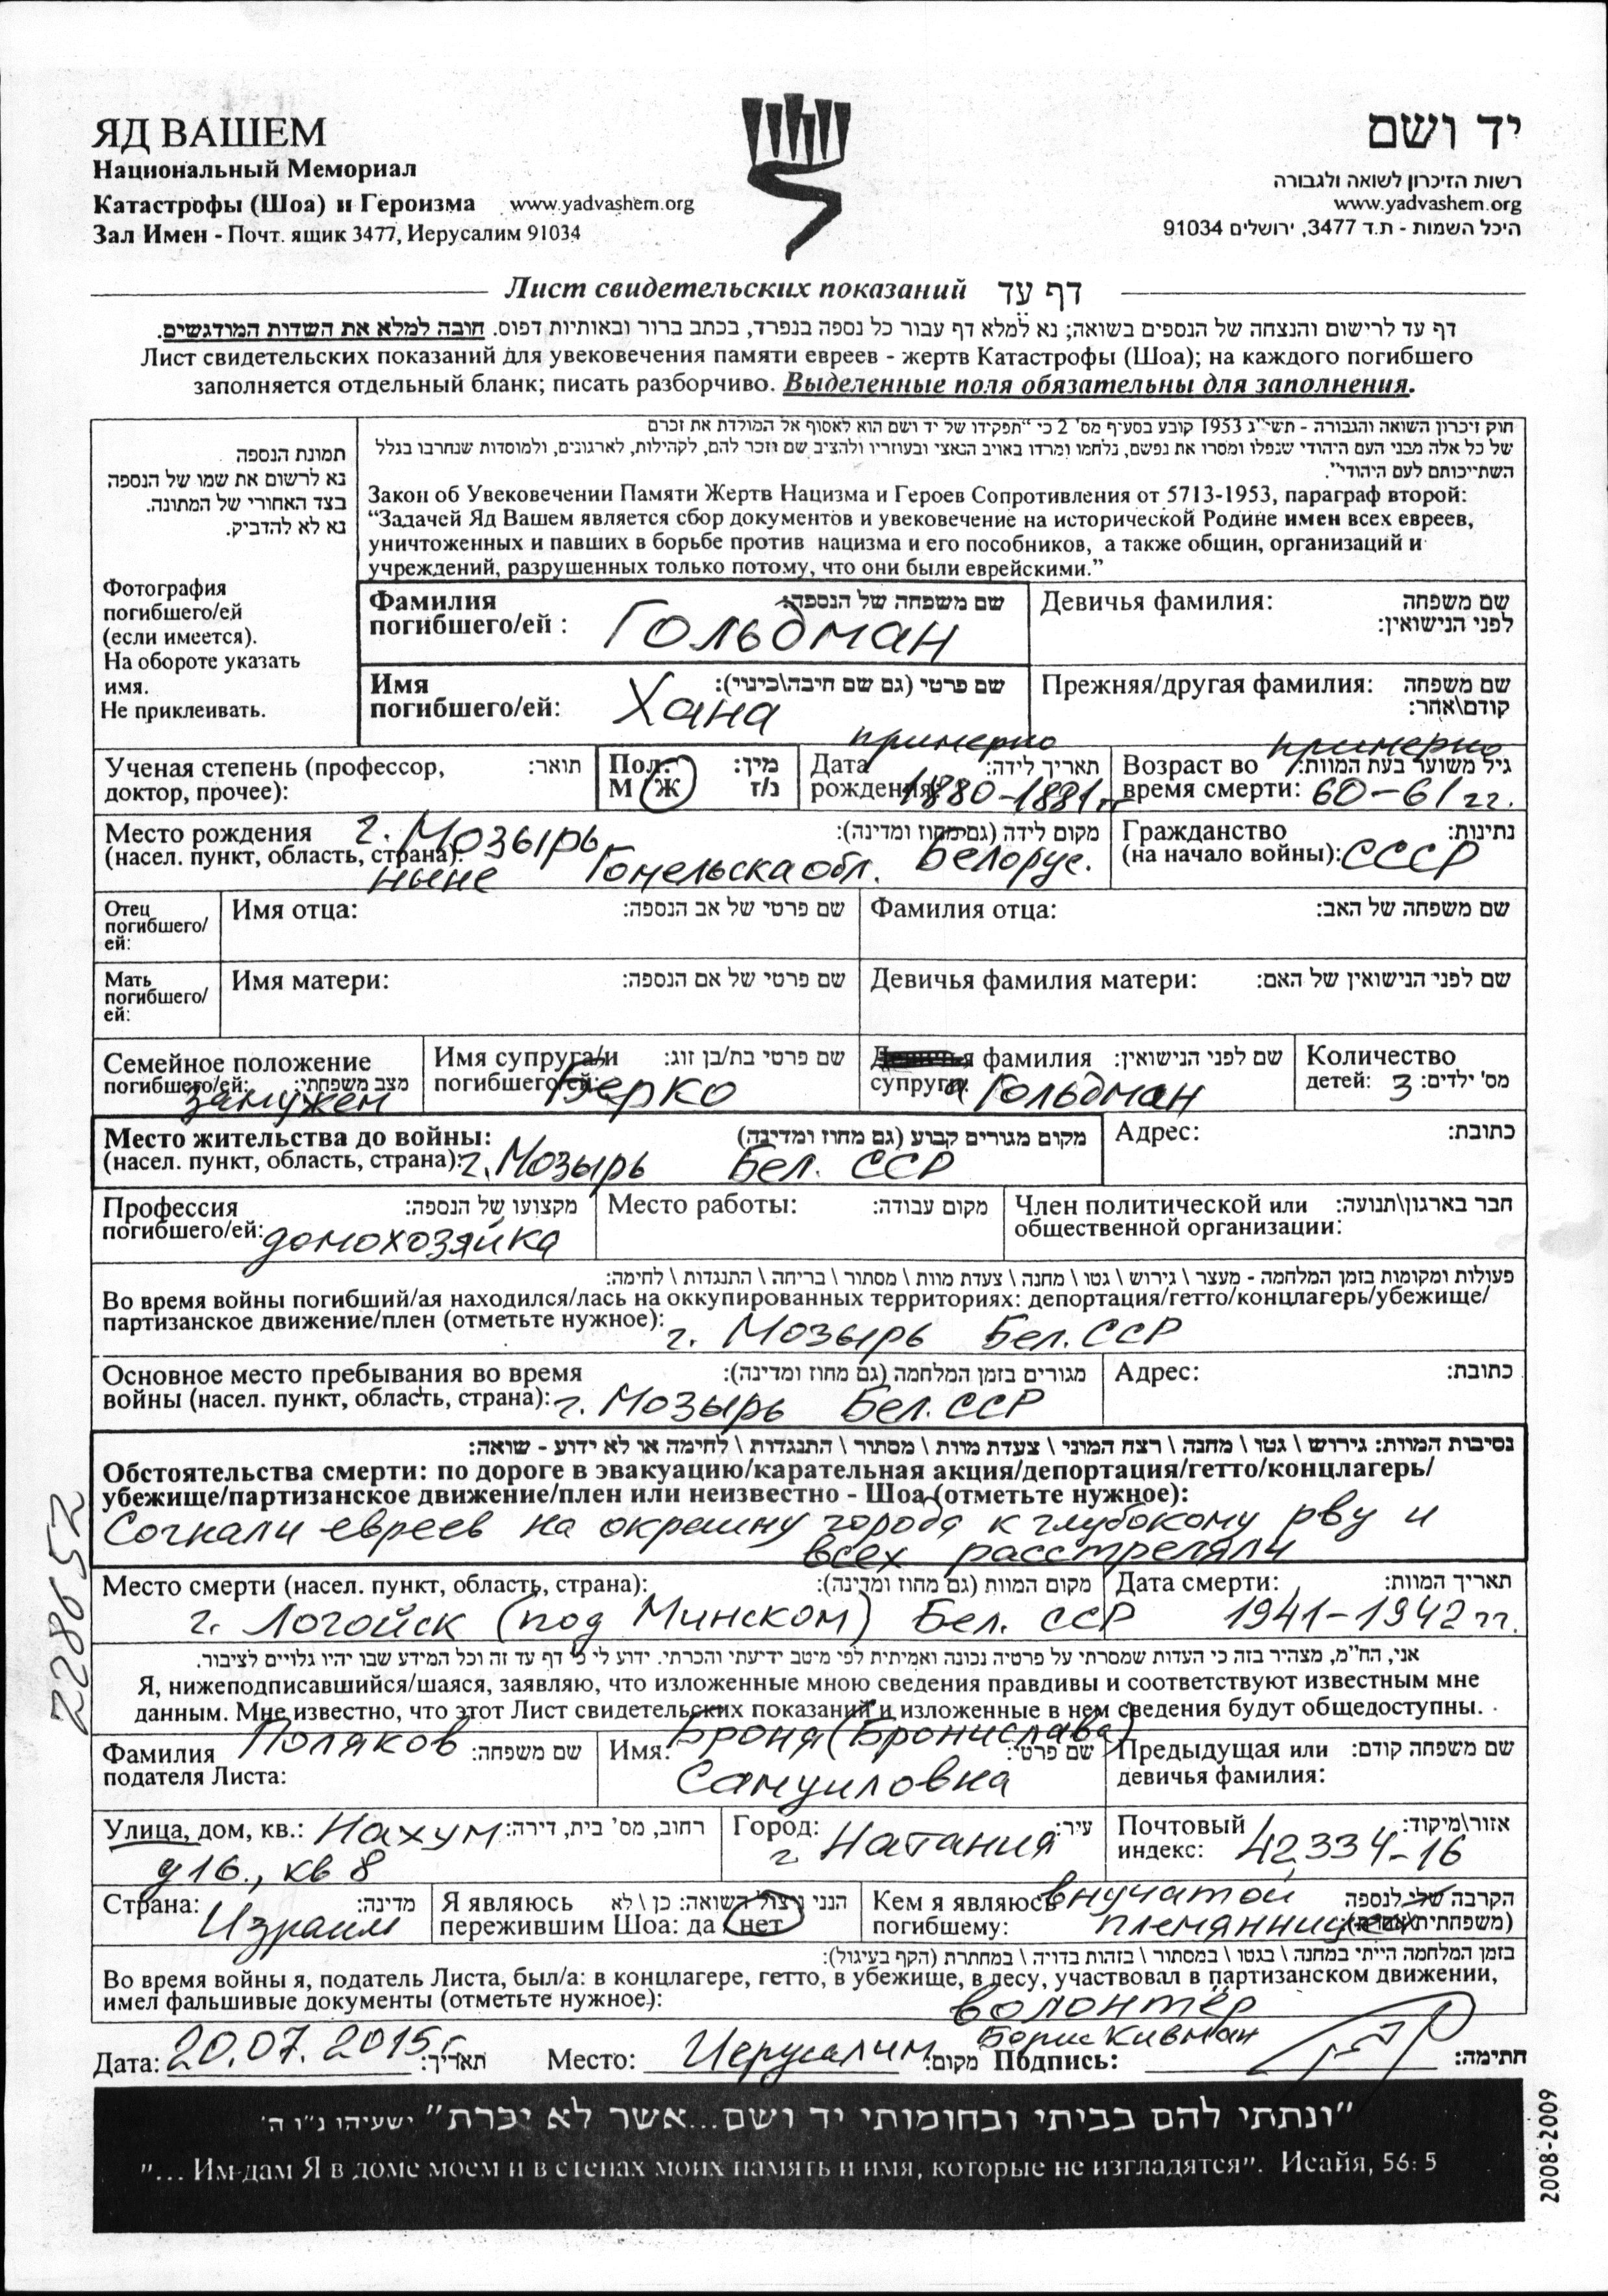 ЯД ВАШЕМ
Национальный Мемориал
Катастрофы (Шоа) и Героизма www.yadvashem.org
Зал Имен - Почт. ящик 3477, Иерусалим 91034
יד ושם
רשות הזיכרון לשואה ולגבורה
www.yadvashem.org
היכל השמות - ת.ד 3477, ירושלים 91034
Лист свидетельских показаний דף עד
דף עד לרישום והנצחה של הנספים בשואה; נא למלא דף עבור כל נספה בנפרד, בכתב ברור ובאותיות דפוס. חובה למלא את השדות המודגשים.
Лист свидетельских показаний для увековечения памяти евреев - жертв Катастрофы (Шоа); на каждого погибшего
заполняется отдельный бланк; писать разборчиво. Выделенные поля обязательны для заполнения.
תמונת הנספה
נא לרשום את שמו של הנספה
בצד האחורי של המתונה.
נא לא להדביק.
Фотография
погибшего/ей
(если имеется).
На обороте указать
имя.
Не приклеивать.
חוק זיכרון השואה והגבורה - תשי"ג 1953 קובע בסעיף מס' 2 כי "תפקידו של יד ושם הוא לאסוף אל המולדת את זכרם
של כל אלה מבני העם היהודי שנפלו ומסרו את נפשם, נלחמו ומרדו באויב הנאצי ובעוזריו ולהציב שם וזכר להם, לקהילות, לארגונים, ולמוסדות שנחרבו בגלל
השתייכותם לעם היהודי".
Закон об Увековечении Памяти Жертв Нацизма и Героев Сопротивления от 5713-1953, параграф второй:
"Задачей Яд Вашем является сбор документов и увековечение на исторической Родине имен всех евреев,
уничтоженных и павших в борьбе против нацизма и его пособников, а также общин, организаций и
учреждений, разрушенных только потому, что они были еврейскими."
Фамилия שם משפחה של הנספה:
погибшего/ей : Гольдман
Девичья фамилия: שם משפחה
לפני הנישואין:
Имя שם פרטי (גם שם חיבה\כינוי):
погибшего/ей: Хана
Прежняя/другая фамилия: שם משפחה
קודם\אחר:
Ученая степень (профессор, תואר:
доктор, прочее):
Пол: מין:
М Ж ז/נ
примерно
Дата תאריך לידה:
рождения: 1880-1881гг
примерно
Возраст во גיל משוער בעת המוות:
время смерти: 60-61 гг.
Место рождения г. Мозырь מקום לידה (גם מחוז ומדינה):
(насел. пункт, область, страна):
ныне Гомельска обл. Белорус.
Гражданство נתינות:
(на начало войны): СССР
Отец
погибшего/
ей:
Имя отца: שם פרטי של אב הנספה:
Фамилия отца: שם משפחה של האב:
Мать
погибшего/
ей:
Имя матери: שם פרטי של אם הנספה:
Девичья фамилия матери: שם לפני הנישואין של האם:
Семейное положение
погибшего/ей: מצב משפחתי:
замужем
Имя супруга/и שם פרטי בת/בן זוג:
погибшего/ей: Берко
Девичья фамилия שם לפני הנישואין:
супруга Гольдман
Количество
детей: 3 מס' ילדים:
Место жительства до войны: מקום מגורים קבוע (גם מחוז ומדינה)
(насел. пункт, область, страна): г. Мозырь Бел. ССР
Адрес: כתובת:
Профессия מקצועו של הנספה:
погибшего/ей: домохозяйка
Место работы: מקום עבודה:
Член политической или חבר בארגון\תנועה:
общественной организации:
פעולות ומקומות בזמן המלחמה - מעצר \ גירוש \ גטו \ מחנה \ צעדת מוות \ מסתור \ בריחה \ התנגדות \ לחימה:
Во время войны погибший/ая находился/лась на оккупированных территориях: депортация/гетто/концлагерь/убежище/
партизанское движение/плен (отметьте нужное): г. Мозырь Бел. ССР
Основное место пребывания во время מגורים בזמן המלחמה (גם מחוז ומדינה):
войны (насел. пункт, область, страна): г. Мозырь Бел. ССР
Адрес: כתובת:
נסיבות המוות: גירוש \ גטו \ מחנה \ רצח המוני \ צעדת מוות \ מסתור \ התנגדות \ לחימה או לא ידוע - שואה:
Обстоятельства смерти: по дороге в эвакуацию/карательная акция/депортация/гетто/концлагерь/
убежище/партизанское движение/плен или неизвестно - Шоа (отметьте нужное):
Согнали евреев на окраину города к глубокому рву и
всех расстреляли
Место смерти (насел. пункт, область, страна): מקום המוות (גם מחוז ומדינה):
г. Логойск (под Минском) Бел. ССР
Дата смерти: תאריך המוות:
1941-1942 гг.
אני, הח"מ, מצהיר בזה כי העדות שמסרתי על פרטיה נכונה ואמיתית לפי מיטב ידיעתי והכרתי. ידוע לי כי דף עד זה וכל המידע שבו יהיו גלויים לציבור.
Я, нижеподписавшийся/шаяся, заявляю, что изложенные мною сведения правдивы и соответствуют известным мне
данным. Мне известно, что этот Лист свидетельских показаний и изложенные в нем сведения будут общедоступны.
Фамилия Поляков שם משפחה:
подателя Листа:
Броня (Бронислава)
Имя: שם פרטי:
Самуиловна
Предыдущая или שם משפחה קודם:
девичья фамилия:
Улица, дом, кв.: Нахум רחוב, מס' בית, דירה:
д 16., кв 8
Город: עיר:
г. Натания
Почтовый אזור\מיקוד:
индекс: 42334-16
Страна: מדינה:
Израиль
Я являюсь הנני ניצול השואה: כן \ לא
пережившим Шоа: да / нет
Кем я являюсь внучатой הקרבה שלי לנספה
погибшему: племянницей (משפחתית\אחרת):
בזמן המלחמה הייתי במחנה \ בגטו \ במסתור \ בזהות בדויה \ במחתרת (הקף בעיגול):
Во время войны я, податель Листа, был/а: в концлагере, гетто, в убежище, в лесу, участвовал в партизанском движении,
имел фальшивые документы (отметьте нужное):
волонтёр
Борис Кивман
Дата: 20.07.2015г. תאריך: Место: Иерусалим מקום: Подпись: חתימה:
"ונתתי להם בביתי ובחומותי יד ושם...אשר לא יכרת" ישעיהו נ"ו ה'
"... Им дам Я в доме моем и в стенах моих память и имя, которые не изгладятся". Исайя, 56: 5
228652
2008-2009